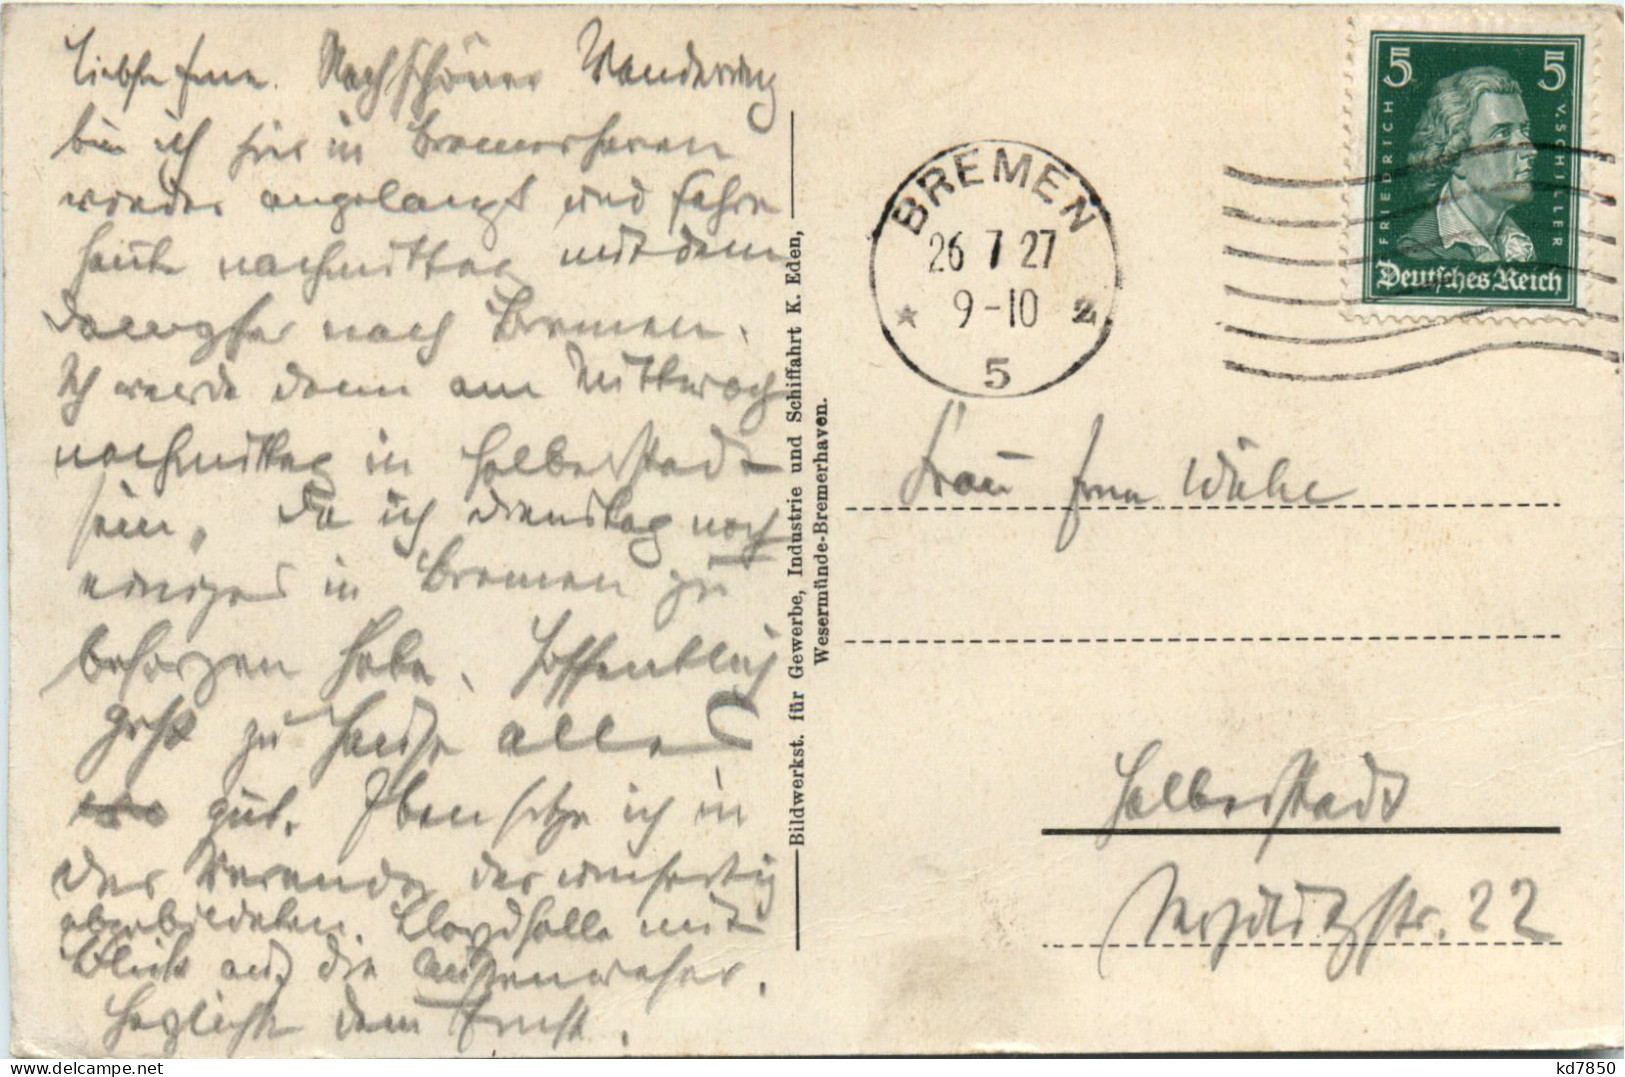 Liebste Erna. Nach schöner Wanderung
bin ich hier in Bremerhaven
wieder angelangt und fahre
heute nachmittag mit dem
Dampfer nach Bremen.
Ich werde dann am Mittwoch
nachmittag in Halberstadt
sein, da ich Dienstag noch
einiges in Bremen zu
besorgen habe. Hoffentlich
geht zu Hause alles
gut. Eben sitze ich in
der Veranda der umseitig
abgebildeten Lloydhalle mit
Blick auf die Außenweser.
Herzlichst Dein Ernst.
Bildwerkst. für Gewerbe, Industrie und Schiffahrt K. Eden,
Wesermünde-Bremerhaven.
BREMEN
26 7 27
9-10
* 2
5
5 5
FRIEDRICH
V. SCHILLER
Deutsches Reich
Frau Erna
Halberstadt
str. 22
kd7850